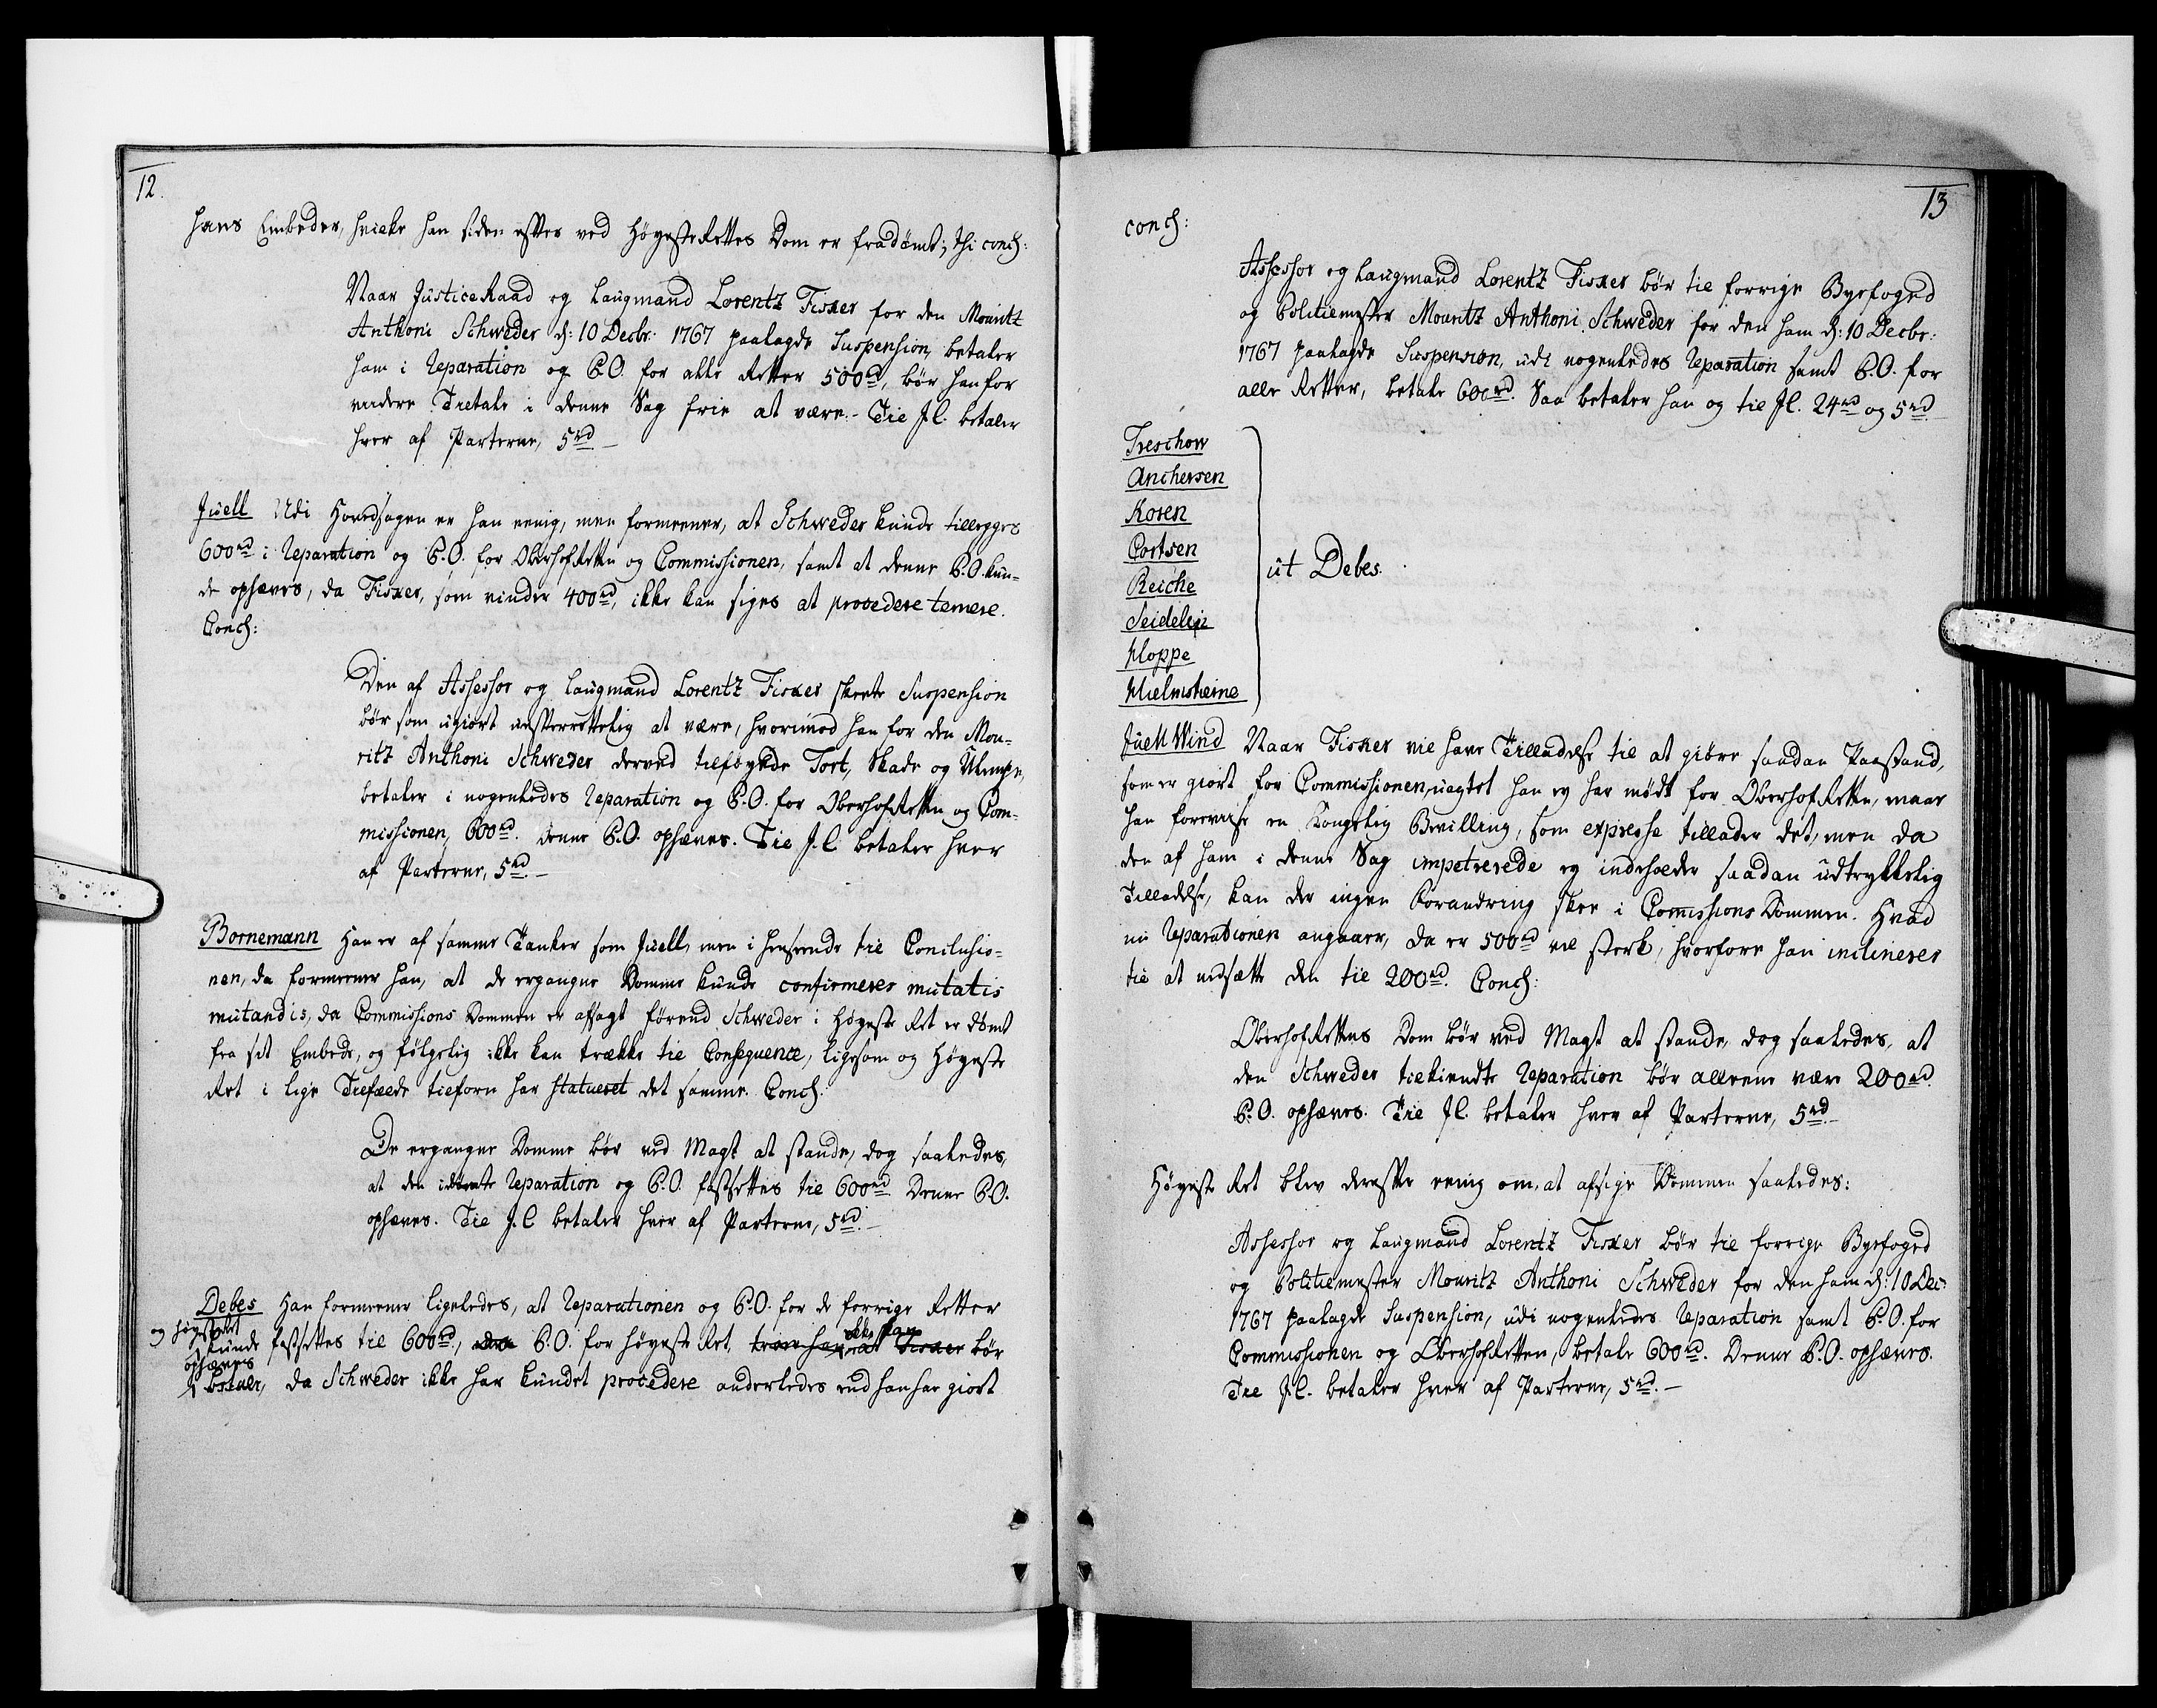 12.
hans Embeder, hvilke han siden efter ved HøyesteRettes Dom er fradømt; thi concl:
Naar JusticeRaad og Laugmand Lorentz Fisker for den Mouritz
Anthoni Schweder d: 10 Decbr: 1767 paalagde Suspension, betaler
ham i Reparation og P.O. for alle Retter 500rd, bør han for
videre Tretale i denne Sag frie at være. Til J.C. betaler
hver af Parterne, 5rd
Juell Udi Hovedsagen er han eenig, men formeener, at Schweder kunde tillegges
600rd i Reparation og P.O. for OberhofRetten og Commissionen, samt at denne P.O. kun-
de ophæves, da Fisker, som vinder 400rd, ikke kan siges at procedere temere.
Concl:
Den af Assessor og Laugmand Lorentz Fisker skeete Suspension
bør som ugiort uefterrettelig at være, hvorimod han for den Mou-
ritz Anthoni Schweder derved tilføyede Tort, Skade og Ulempe,
betaler i nogenledes Reparation og P.O. for OberhofRetten og Com-
missionen, 600rd. Denne P.O. ophæves. Til J.C. betaler hver
af Parterne, 5rd
Bornemann Han er af samme Tanker som Juell, men i henseende til Conclusio-
nen, da formeener han, at de ergangne Domme kunde confirmeres mutatis
mutandis, da Commissions Dommen er afsagt førend Schweder i Høyeste Ret er dømt
fra sit Embede, og følgelig ikke kan trække til Conseqvence, ligesom og Høyeste
Ret i lige Tilfælde tilforn har statueret det samme. Concl:
De ergangne Domme bør ved Magt at stande, dog saaledes,
at den idømte Reparation og P.O. fastsettes til 600rd. Denne P.O.
ophæves. Til J.C. betaler hver af Parterne, 5rd
Debes Han formeener ligeledes, at Reparationen og P.O. for de forrige Retter
kunde fastsettes til 600rd, P.O. for Høyeste Ret, Fisker bør
ophæves
betale, da Schweder ikke har kundet procedere anderledes end han har giort
13
concl:
Assessor og Laugmand Lorentz Fisker bør til forrige Byefoged
og Politiemester Mouritz Anthoni Schweder for den ham d: 10 Decbr:
1767 paalagde Suspension, udi nogenledes Reparation samt P.O. for
alle Retter, betale 600rd. Saa betaler han og til J.C. 24rd og 5rd
Treschow
Anchersen
Rosen
Cortsen
Reiche
Seidelin
Kloppe
Hielmstierne
ut Debes.
Juell Wind Naar Fisker vil have Tilladelse til at giøre saadan Paastand,
som er giort for Commissionen, uagtet han ey har mødt for OberhofRetten, maae
han foreviise en Kongelig Bevilling, som expresse tillader det, men da
den af ham i denne Sag impetrerede ey indeholder saadan udtrykkelig
Tilladelse, kan der ingen Forandring skee i CommissionsDommen. Hvad
nu Reparationen angaaer, da er 500rd vel sterk, hvorfore han inclinerer
til at nedsætte den til 200rd. Concl:
OberhofRettens Dom bør ved Magt at stande, dog saaledes, at
den Schweder tilkiendte Reparation bør alleene være 200rd.
P.O. ophæves. Til J.C. betaler hver af Parterne, 5rd
Høyeste Ret blev derefter eenig om, at afsige Dommen saaledes:
Assessor og Laugmand Lorentz Fisker bør til forrige Byefoged
og Politiemester Mouritz Anthoni Schweder for den ham d: 10 Dec:
1767 paalagde Suspension, udi nogenledes Reparation samt P.O. for
Commissionen og OberhofRetten, betale 600rd. Denne P.O. ophæves.
Til J.C. betaler hver af Parterne, 5rd.